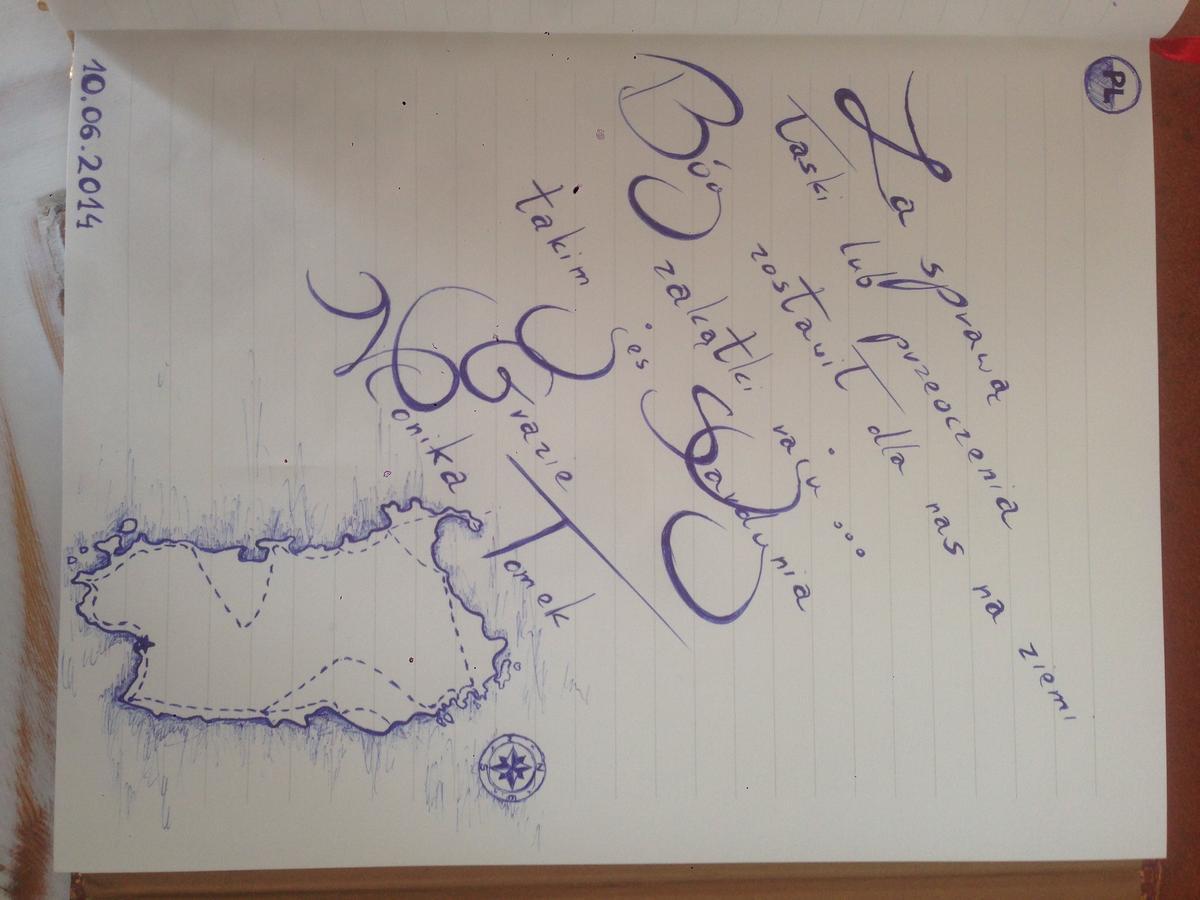 PL
Za sprawą
łaski lub przeoczenia
Bóg zostawił dla nas na ziemi
zakątki raju ...
takim jes Sardynia
Grazie
Monika Tomek
N
E
S
10.06.2014